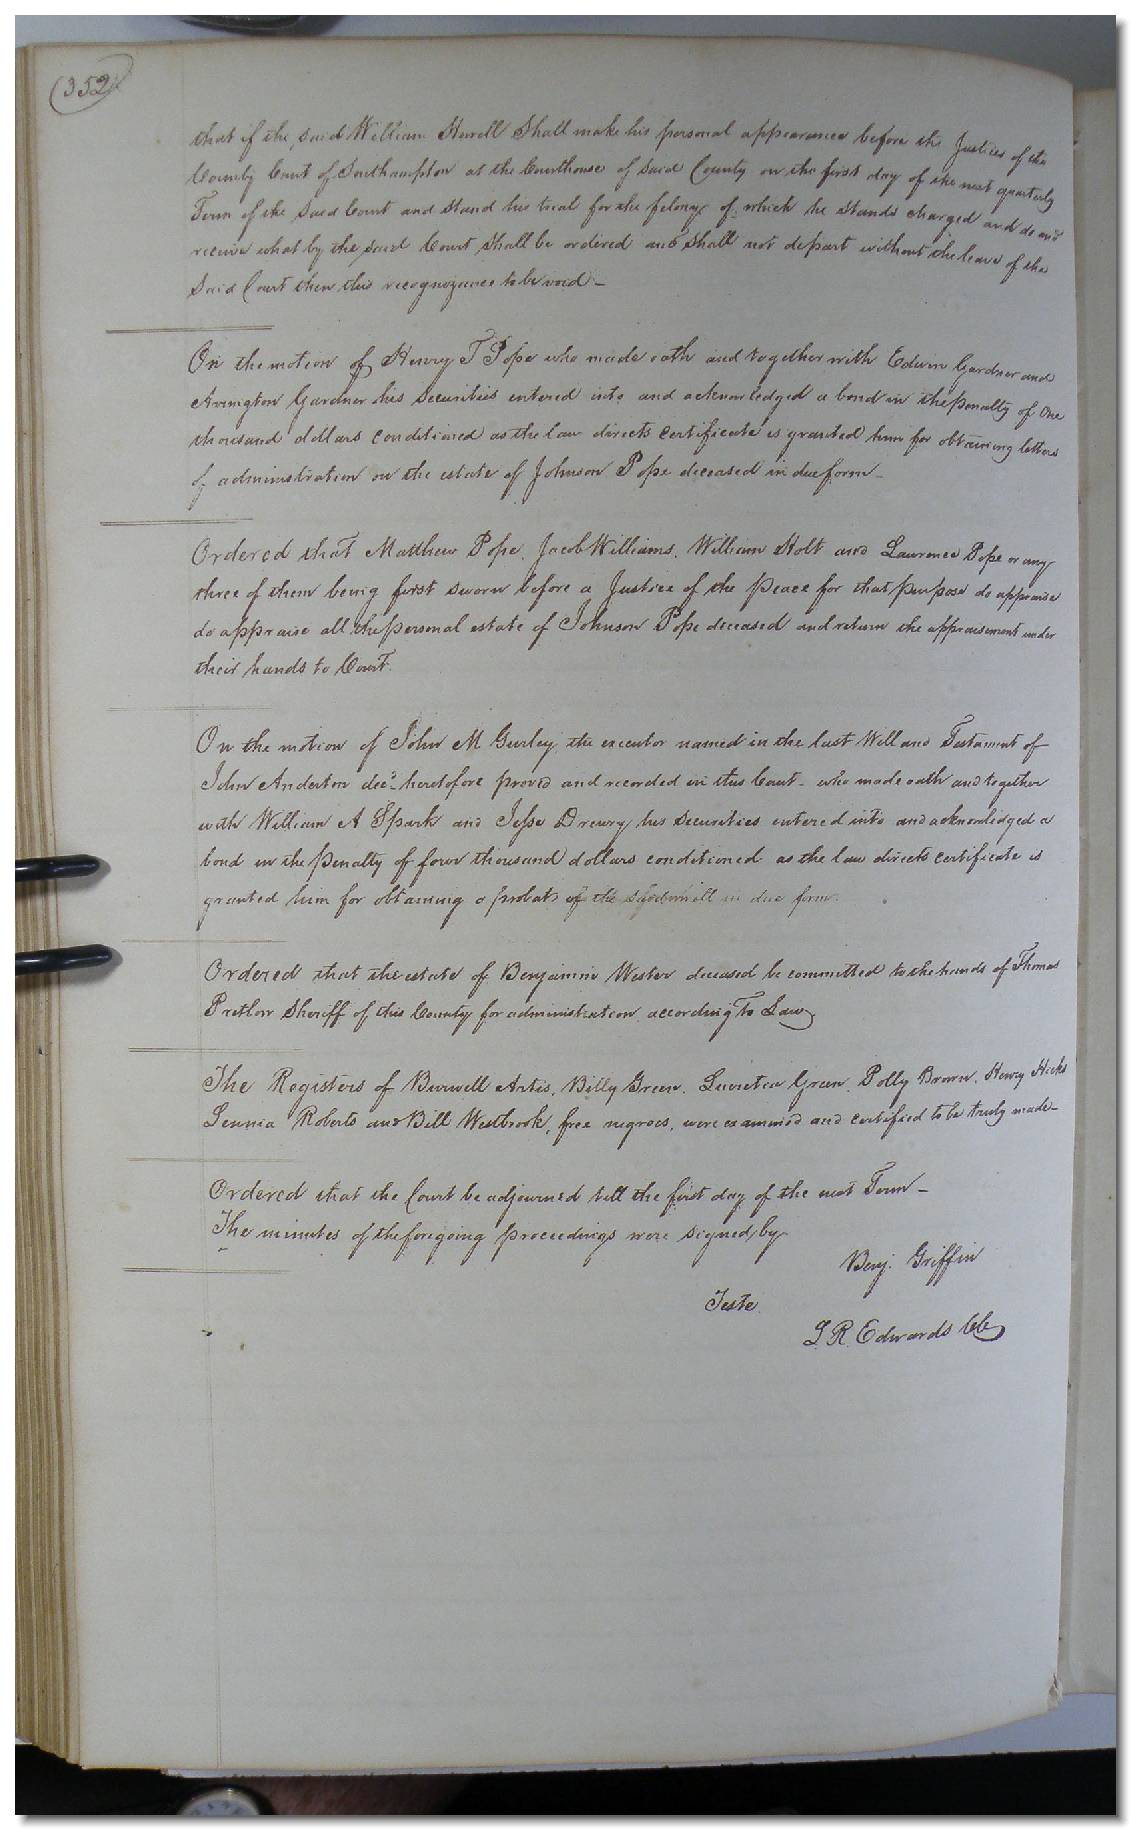 (352)
that if the said William Harell Shall make his personal appearance before the Justices of the
County Court of Southampton at the Courthouse of said County on the first day of the next quarterly
Term of the said Court and stand his trial for the felony of which he stands charged and do and
receive what by the said Court Shall be ordered and Shall not depart without the leave of the
Said Court then this recognizance to be void -
On the motion of Henry T Pope who made oath and together with Edwin Gardner and
Arrington Gardner his securities entered into and acknowledged a bond in the penalty of One
thousand dollars conditioned as the law directs certificate is granted him for obtaining letters
of administration on the estate of Johnson Pope deceased in due form -
Ordered that Matthew Pope, Jacob Williams, William Holt and Lawrence Pope or any
three of them being first sworn before a Justice of the Peace for that purpose do appraise
do appraise all the personal estate of Johnson Pope deceased and return the appraisement under
their hands to Court.
On the motion of John M Gurley the executor named in the last Will and Testament of
John Anderton decd heretofore proved and recorded in this Court - who made oath and together
with William A Spark and Jesse Drewry his securities entered into and acknowledged a
bond in the penalty of four thousand dollars conditioned as the law directs certificate is
granted him for obtaining a probat of the said will in due form.
Ordered that the estate of Benjamin Wester deceased be committed to the hands of Thomas
Pretlow Sheriff of this County for administration according To Law
The Registers of Burwell Artis, Billy Green, Lucretia Green, Polly Brown, Henry Hicks
Roberts and Bill Westbrook, free negroes, were examined and certified to be truly made -
Ordered that the Court be adjourned till the first day of the next Term -
The minutes of the foregoing proceedings were signed by
Benj. Griffin
Teste
L R Edwards CC